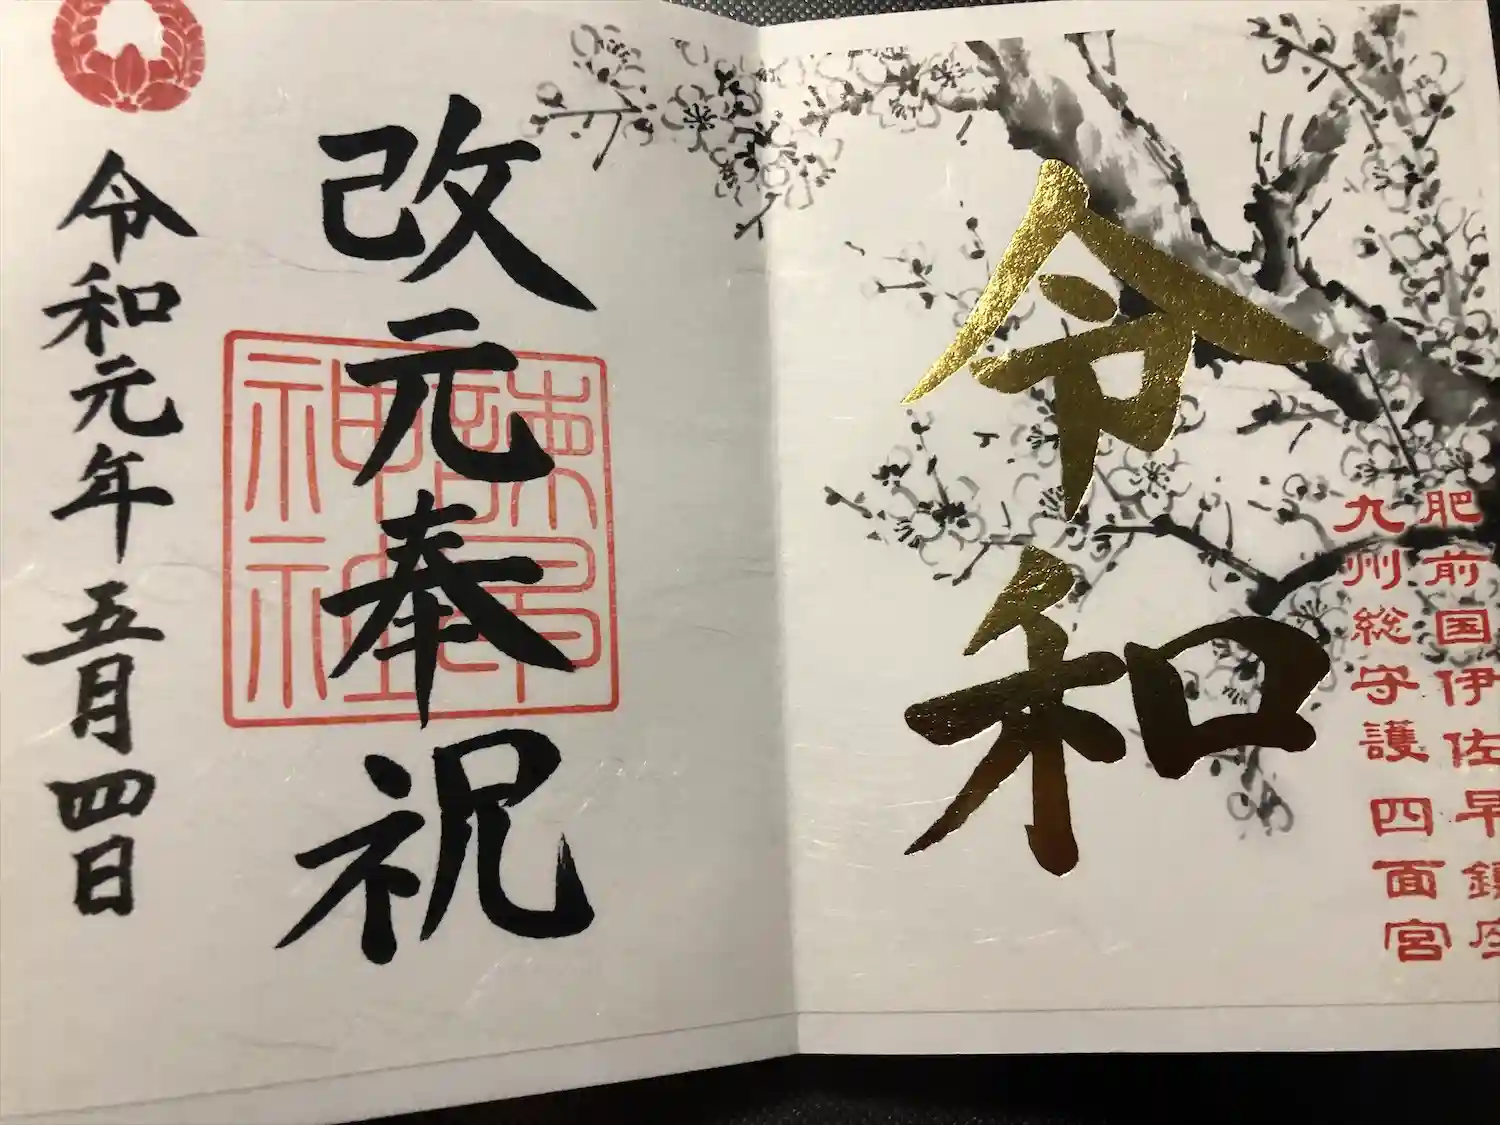 肥前国伊佐早鎮座
九州総守護 四面宮
令和
改元奉祝
諫早神社
令和元年 五月四日